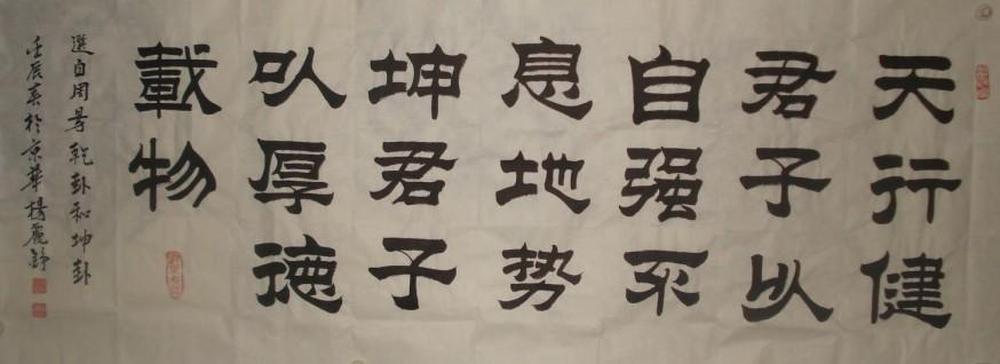 天行健
君子以
自强不
息地势
坤君子
以厚德
載物
選自周易乾卦和坤卦
壬辰春於京華楊麗靜